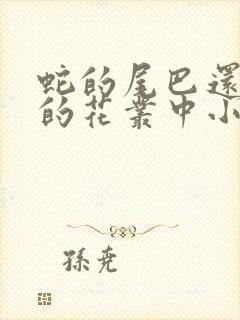 蛇的尾巴還
的花叢中小
孫堯